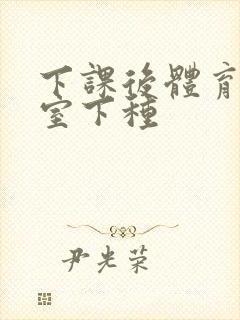 下課後體育
室下種
尹光荣